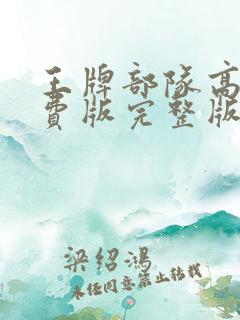 王牌部队高
费版完整版
梁绍鸿
未经同意禁止转载